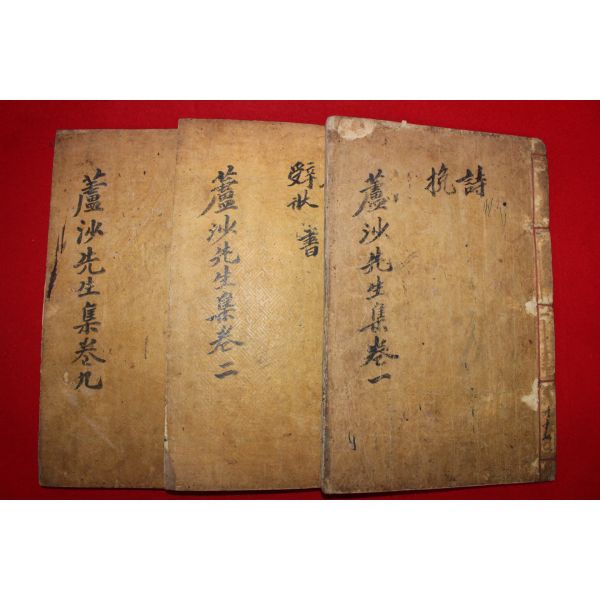 詩
挽
蘆沙先生集卷一
辭狀
書
蘆沙先生集卷二
蘆沙先生集卷九